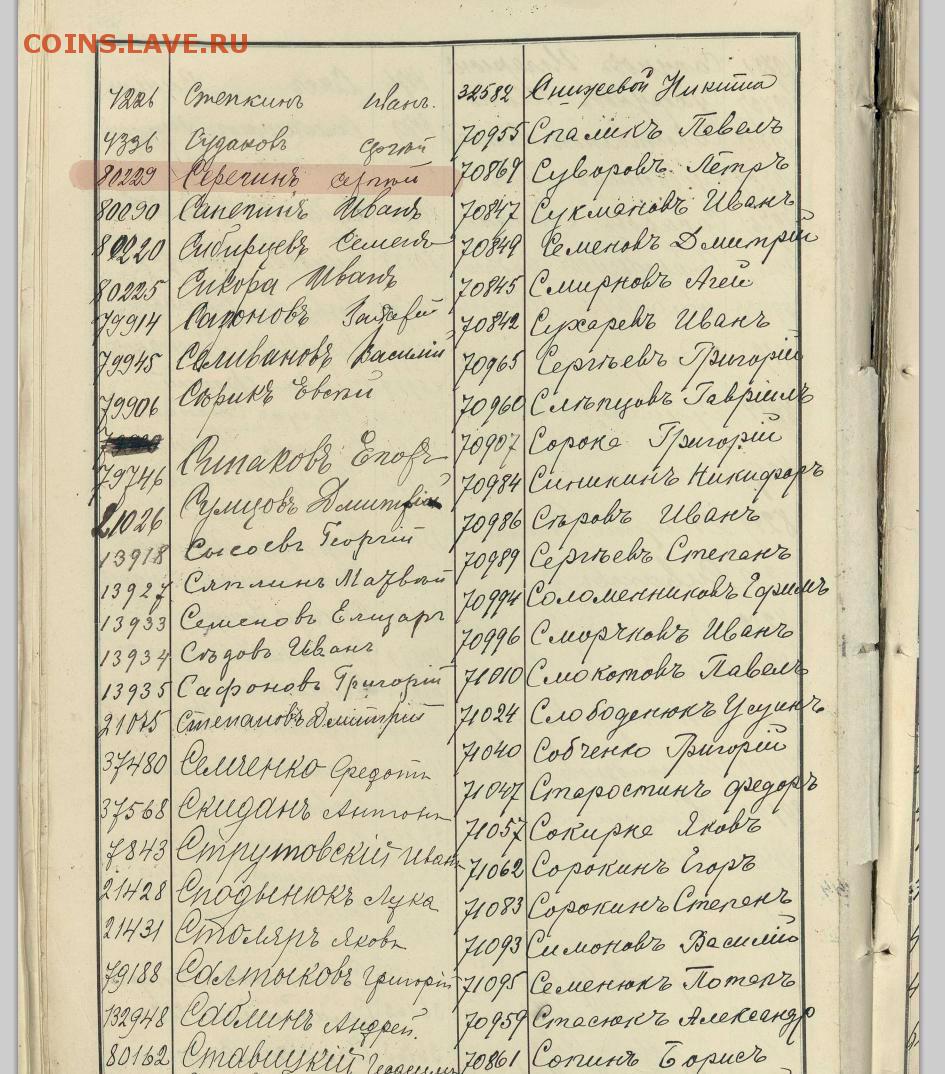 COINS.LAVE.RU
4226 Степкинъ Иванъ.
4396 Судаковъ Сергѣй
80229 Серегинъ Сергѣй
80090 Санегинъ Иванъ
80220 Сибирцевъ Семенъ
80225 Сикора Иванъ
79914 Сафоновъ
79945 Селивановъ Василій
79906 Сюрикъ Евсей
79746 Симаковъ Егоръ
21026 Дмитрій
13918 Сысоевъ Георгій
13927 Сяплинъ Матвѣй
13933 Семеновъ Елизаръ
13934 Сѣдовъ Иванъ
13935 Сафоновъ Григорій
21075 Степановъ Дмитрій
37480 Семченко Федотъ
37568 Скиданъ Антонъ
7843 Струтовскій Иванъ
21428 Сподынюкъ Лука
21431 Столяръ Яковъ
79188 Салтыковъ Григорій
132948 Саблинъ Андрей.
80162 Ставицкій Герасимъ
32582 Снижевой Никита
70955 Спаликъ Павелъ
70869 Суворовъ Петръ
70847 Сукмановъ Иванъ
70849 Семеновъ Дмитрій
70845 Смирновъ Агей
70842 Сухаревъ Иванъ
70965 Сергѣевъ Григорій
70960 Слѣпцовъ Гавріилъ
70907 Сорока Григорій
70984 Синикинъ Никифоръ
70986 Сѣровъ Иванъ
70989 Сергѣевъ Степанъ
70994 Соломенниковъ Ефимъ
70996 Сморчковъ Иванъ
71010 Смокотовъ Павелъ
71024 Слободенюкъ
71040 Собченко Григорій
71047 Старостинъ Федоръ
71057 Сокирка Яковъ
71062 Сорокинъ Егоръ
71083 Сорокинъ Степанъ
71093 Симоновъ Василій
71095 Семенюкъ Потапъ
70959 Стасюкъ Александръ
70861 Сопинъ Борисъ